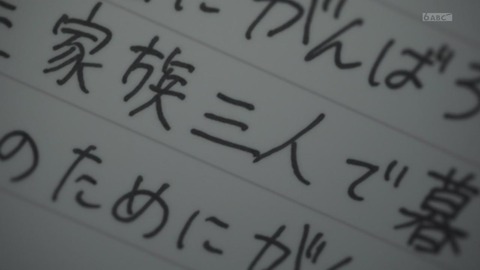 にがんばろ
家族三人で暮
のためにがん
6 ABC